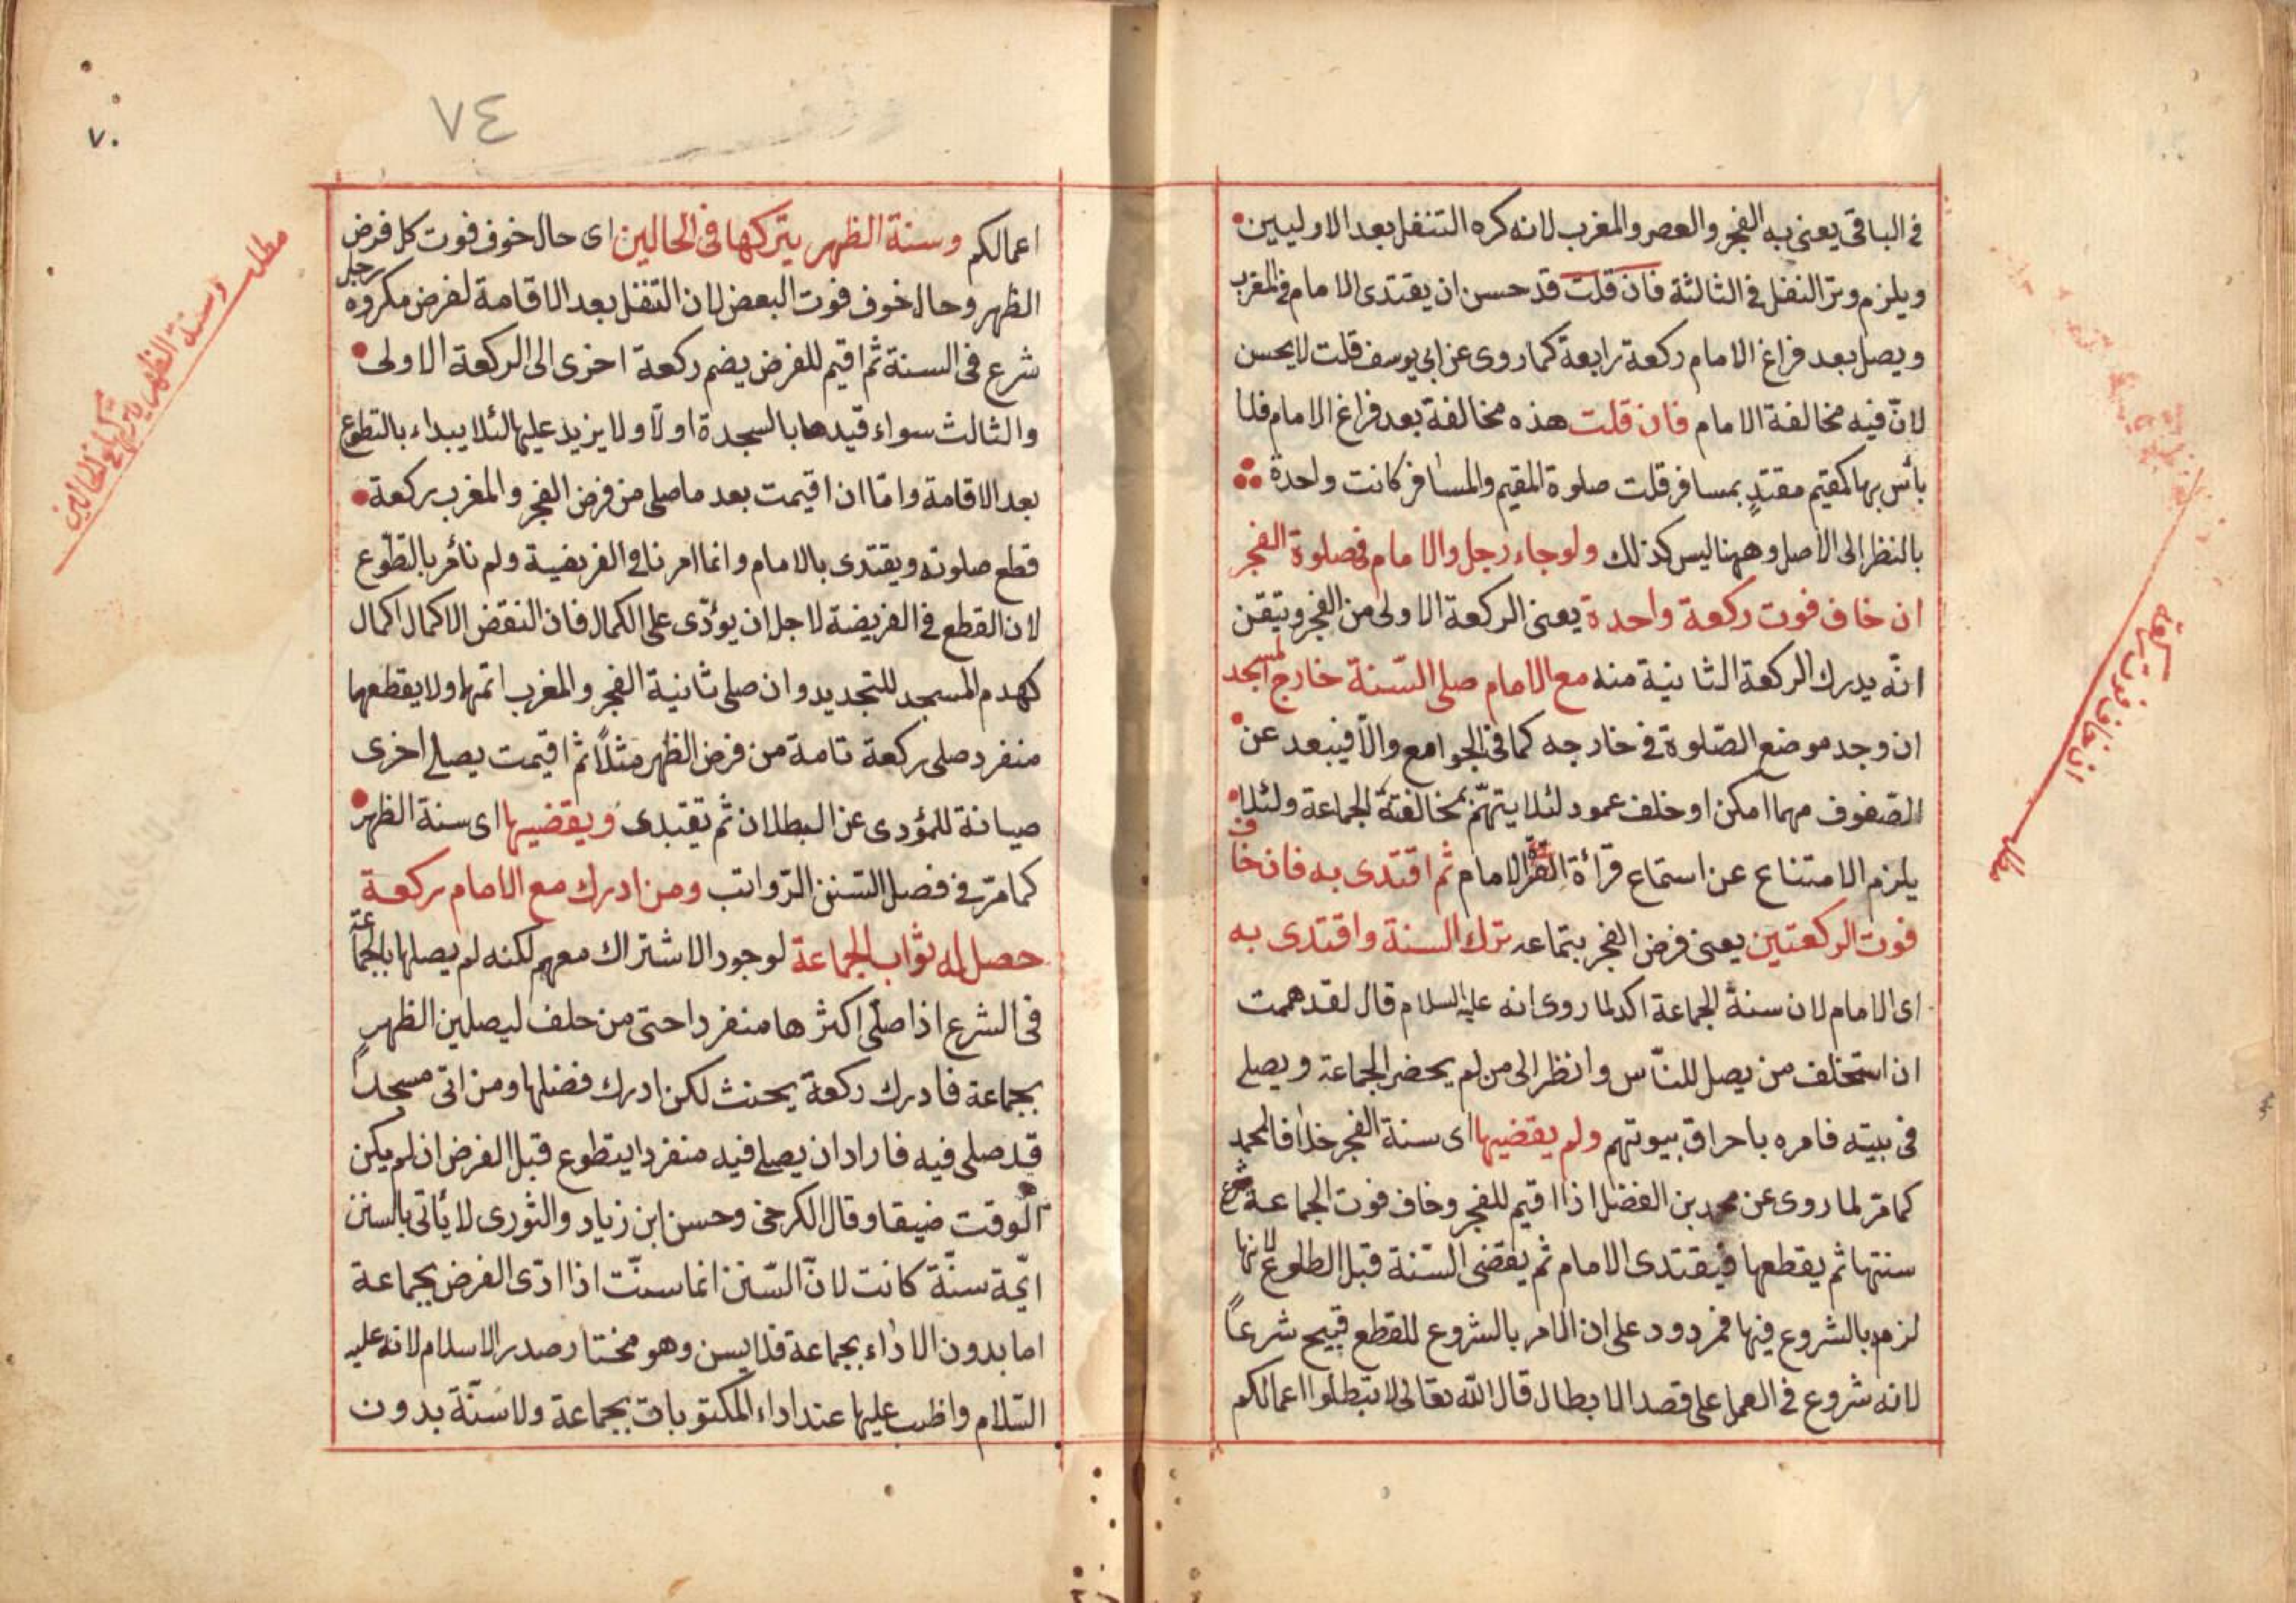 في الباقي يعني به الفجر والعصر والمغرب لانه كره التنفل بعد الاوليين
ويلزم وتر النفل في الثالثة فان قلت قد حسن ان يقتدى الامام في المغرب
ويصل بعد فراغ الامام ركعة رابعة كما روى عن ابي يوسف قلت لا يحسن
لانّ فيه مخالفة الامام فان قلت هذه مخالفة بعد فراغ الامام فلا
بأس بها كمقيم مقتدٍ بمسافر قلت صلوة المقيم والمسافر كانت واحدة
بالنظر الى الاصل وههنا ليس كذلك ولو جاء رجل والامام في صلوة الفجر
ان خاف فوت ركعة واحدة يعني الركعة الاولى من الفجر وتيقن
انّه يدرك الركعة الثانية منه مع الامام صلى السّنة خارج المسجد
ان وجد موضع الصّلوة في خارجه كما في الجوامع والّا فيبعد عن
الصّفوف مهما امكن او خلف عمود لئلا يتهّم بمخالفة الجماعة ولئلا
يلزم الامتناع عن استماع قرأة الامام ثم اقتدى به فان خاف
فوت الركعتين يعني فرض الفجر بتماعه ترك السنة واقتدى به
اى الامام لان سنة الجماعة اكد لما روى انه عليه السلام قال لقد هممت
ان استخلف من يصل للنّاس وانظر الى من لم يحضر الجماعة ويصلى
في بيته فامره باحراق بيوتهم ولم يقضيها اى سنة الفجر خلافا لمحمد
كما مرّ لما روى عن محمد بن الفضل اذا اقيم للفجر وخاف فوت الجماعة شرع
سنتها ثم يقطعها فيقتدى الامام ثم يقضى السّنة قبل الطلوع لانها
لزمه بالشروع فيها فمردود على ان الامر بالشروع للقطع قبيح شرعاً
لانه شروع في العمل على قصد الابطال قال الله تعالى لا تبطلوا اعمالكم
مطلب
ان خاف فوت ركعة
٧٤
٧٠
اعمالكم وسنة الظهر يتركها في الحالين اى حال خوف فوت كل فرض
الظهر وحال خوف فوت البعض لان التنفل بعد الاقامة لفرض مكروه رجل
شرع في السنة ثم اقيم للفرض يضم ركعة اخرى الى الركعة الاولى
والثالث سواء قيدها بالسجدة اولًا ولا يزيد عليها لئلا يبداء بالتطوع
بعد الاقامة وامّا ان اقيمت بعد ما صلى من فرض الفجر والمغرب ركعة
قطع صلوته ويقتدى بالامام وانما امرنا في الفريضة ولم نأمر بالتطوع
لان القطع في الفريضة لاجل ان يؤدّى على الكمال فان النقض الاكمال اكمال
كهدم المسجد للتجديد وان صلى ثانية الفجر والمغرب اتمها ولا يقطعها
منفرد صلى ركعة تامة من فرض الظهر مثلاً ثم اقيمت يصلى اخرى
صيانة للمؤدى عن البطلان ثم يقتدى ويقضيها اى سنة الظهر
كما مرّ في فصل السّنن الرّواتب ومن ادرك مع الامام ركعة
حصل له ثواب الجماعة لوجود الاشتراك معهم لكنه لم يصلها بالجماعة
في الشرع اذا صلّى اكثرها منفردا حتى من حلف ليصلين الظهر
بجماعة فادرك ركعة يحنث لكن ادرك فضلها ومن اتى مسجداً
قد صلى فيه فاراد ان يصلى فيه منفردا يتطوع قبل الفرض ان لم يكن
الوقت ضيقا وقال الكرخى وحسن ابن زياد والثورى لا يأتى بالسنن
ايّة سنّة كانت لانّ السّنن انما سنّت اذا ادّى الفرض بجماعة
اما بدون الاداء بجماعة فلا يسن وهو مختار صدر الاسلام لانه عليه
السّلام واظب عليها عند اداء المكتوبات بجماعة ولا سنّة بدون
مطلب
وسنة الظهر يتركها في الحالين